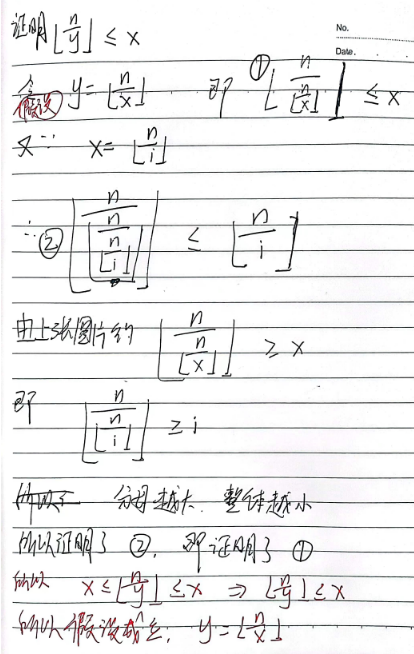 No.
Date.
证明 ⌊n/y⌋ ≤ x
假设 y = ⌊n/x⌋ 即 ① ⌊n/⌊n/x⌋⌋ ≤ x
又∵ x = ⌊n/i⌋
∴ ② ⌊n/⌊n/⌊n/i⌋⌋⌋ ≤ ⌊n/i⌋
由上张图片的 ⌊n/⌊n/x⌋⌋ ≥ x
即 ⌊n/⌊n/i⌋⌋ ≥ i
分母越大. 整体越小
所以证明了 ②, 即证明了 ①
所以 x ≤ ⌊n/y⌋ ≤ x ⇒ ⌊n/y⌋ ≤ x
所以假设成立, y = ⌊n/x⌋